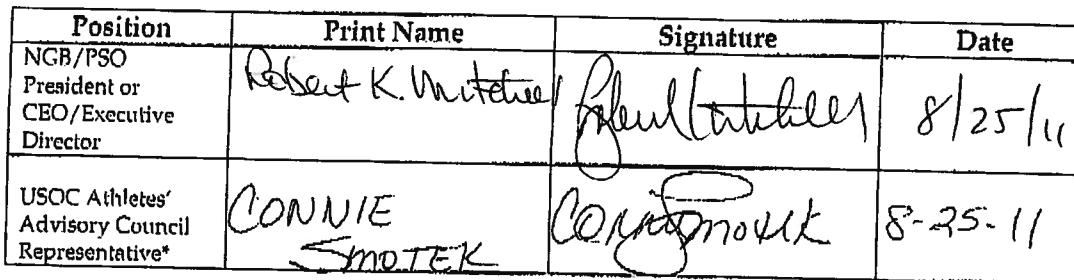 Position Print Name Signature Date
NGB/PSO
President or
CEO/Executive
Director
Robert K. Mitchell
8/25/11
USOC Athletes'
Advisory Council
Representative*
CONNIE
SMOTEK
Connie Smotek
8-25-11